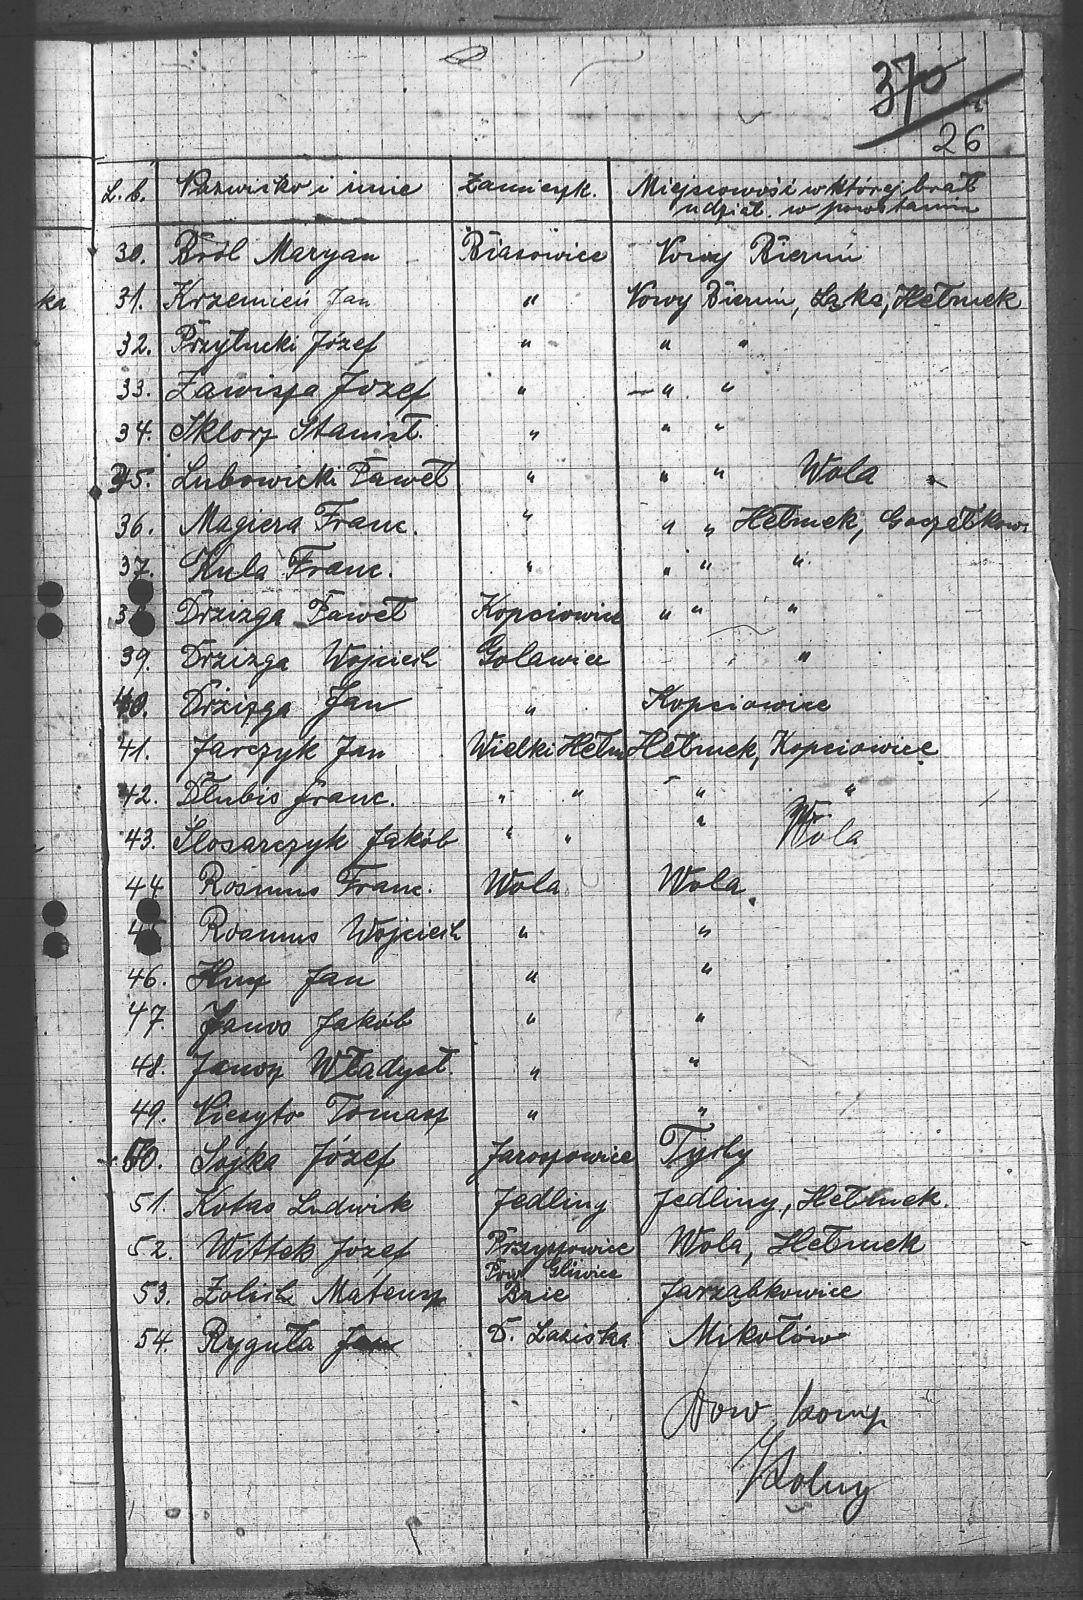 370
26
L.b. Nazwisko i imię Zamieszk. Miejscowość w której brał
udział w powstaniu
30. Król Maryan Biasowice Nowy Bieruń
ka 31. Krzemień Jan " Nowy Bieruń, Łąka, Hełmek
32. Przytucki Józef " " "
33. Zawisza Józef " — " "
34. Sklorz Stanisł. " " "
35. Lubowicki Paweł " " " Wola
36. Magiera Franc. " " " Hełmek, Goczałkow.
37. Kula Franc. " " " "
38 Drzizga Paweł Kopciowice " " "
39. Drzizga Wojciech Golawice "
40. Drzizga Jan " Kopciowice
41. Jarczyk Jan Wielki Hełm Hełmek, Kopciowice
42. Dłubis Franc. " " " "
43. Ślosarczyk Jakób " " " Wola
44 Rosmus Franc. Wola Wola
45 Rosmus Wojciech " "
46. Jan " "
47. Janos Jakób " "
48. Władysł. " "
49. Tomasz " "
50. Sojka Józef Jaroszowice Tychy
51. Kotas Ludwik Jedliny Jedliny, Hełmek.
52. Wittek Józef Przyszowice Wola, Hełmek
Pow Gliwice
53. Zolich Mateusz Bzie Jarząbkowice
54. Ryguła Jan D. Łaziska Mikołów
Dow komp
Wolny